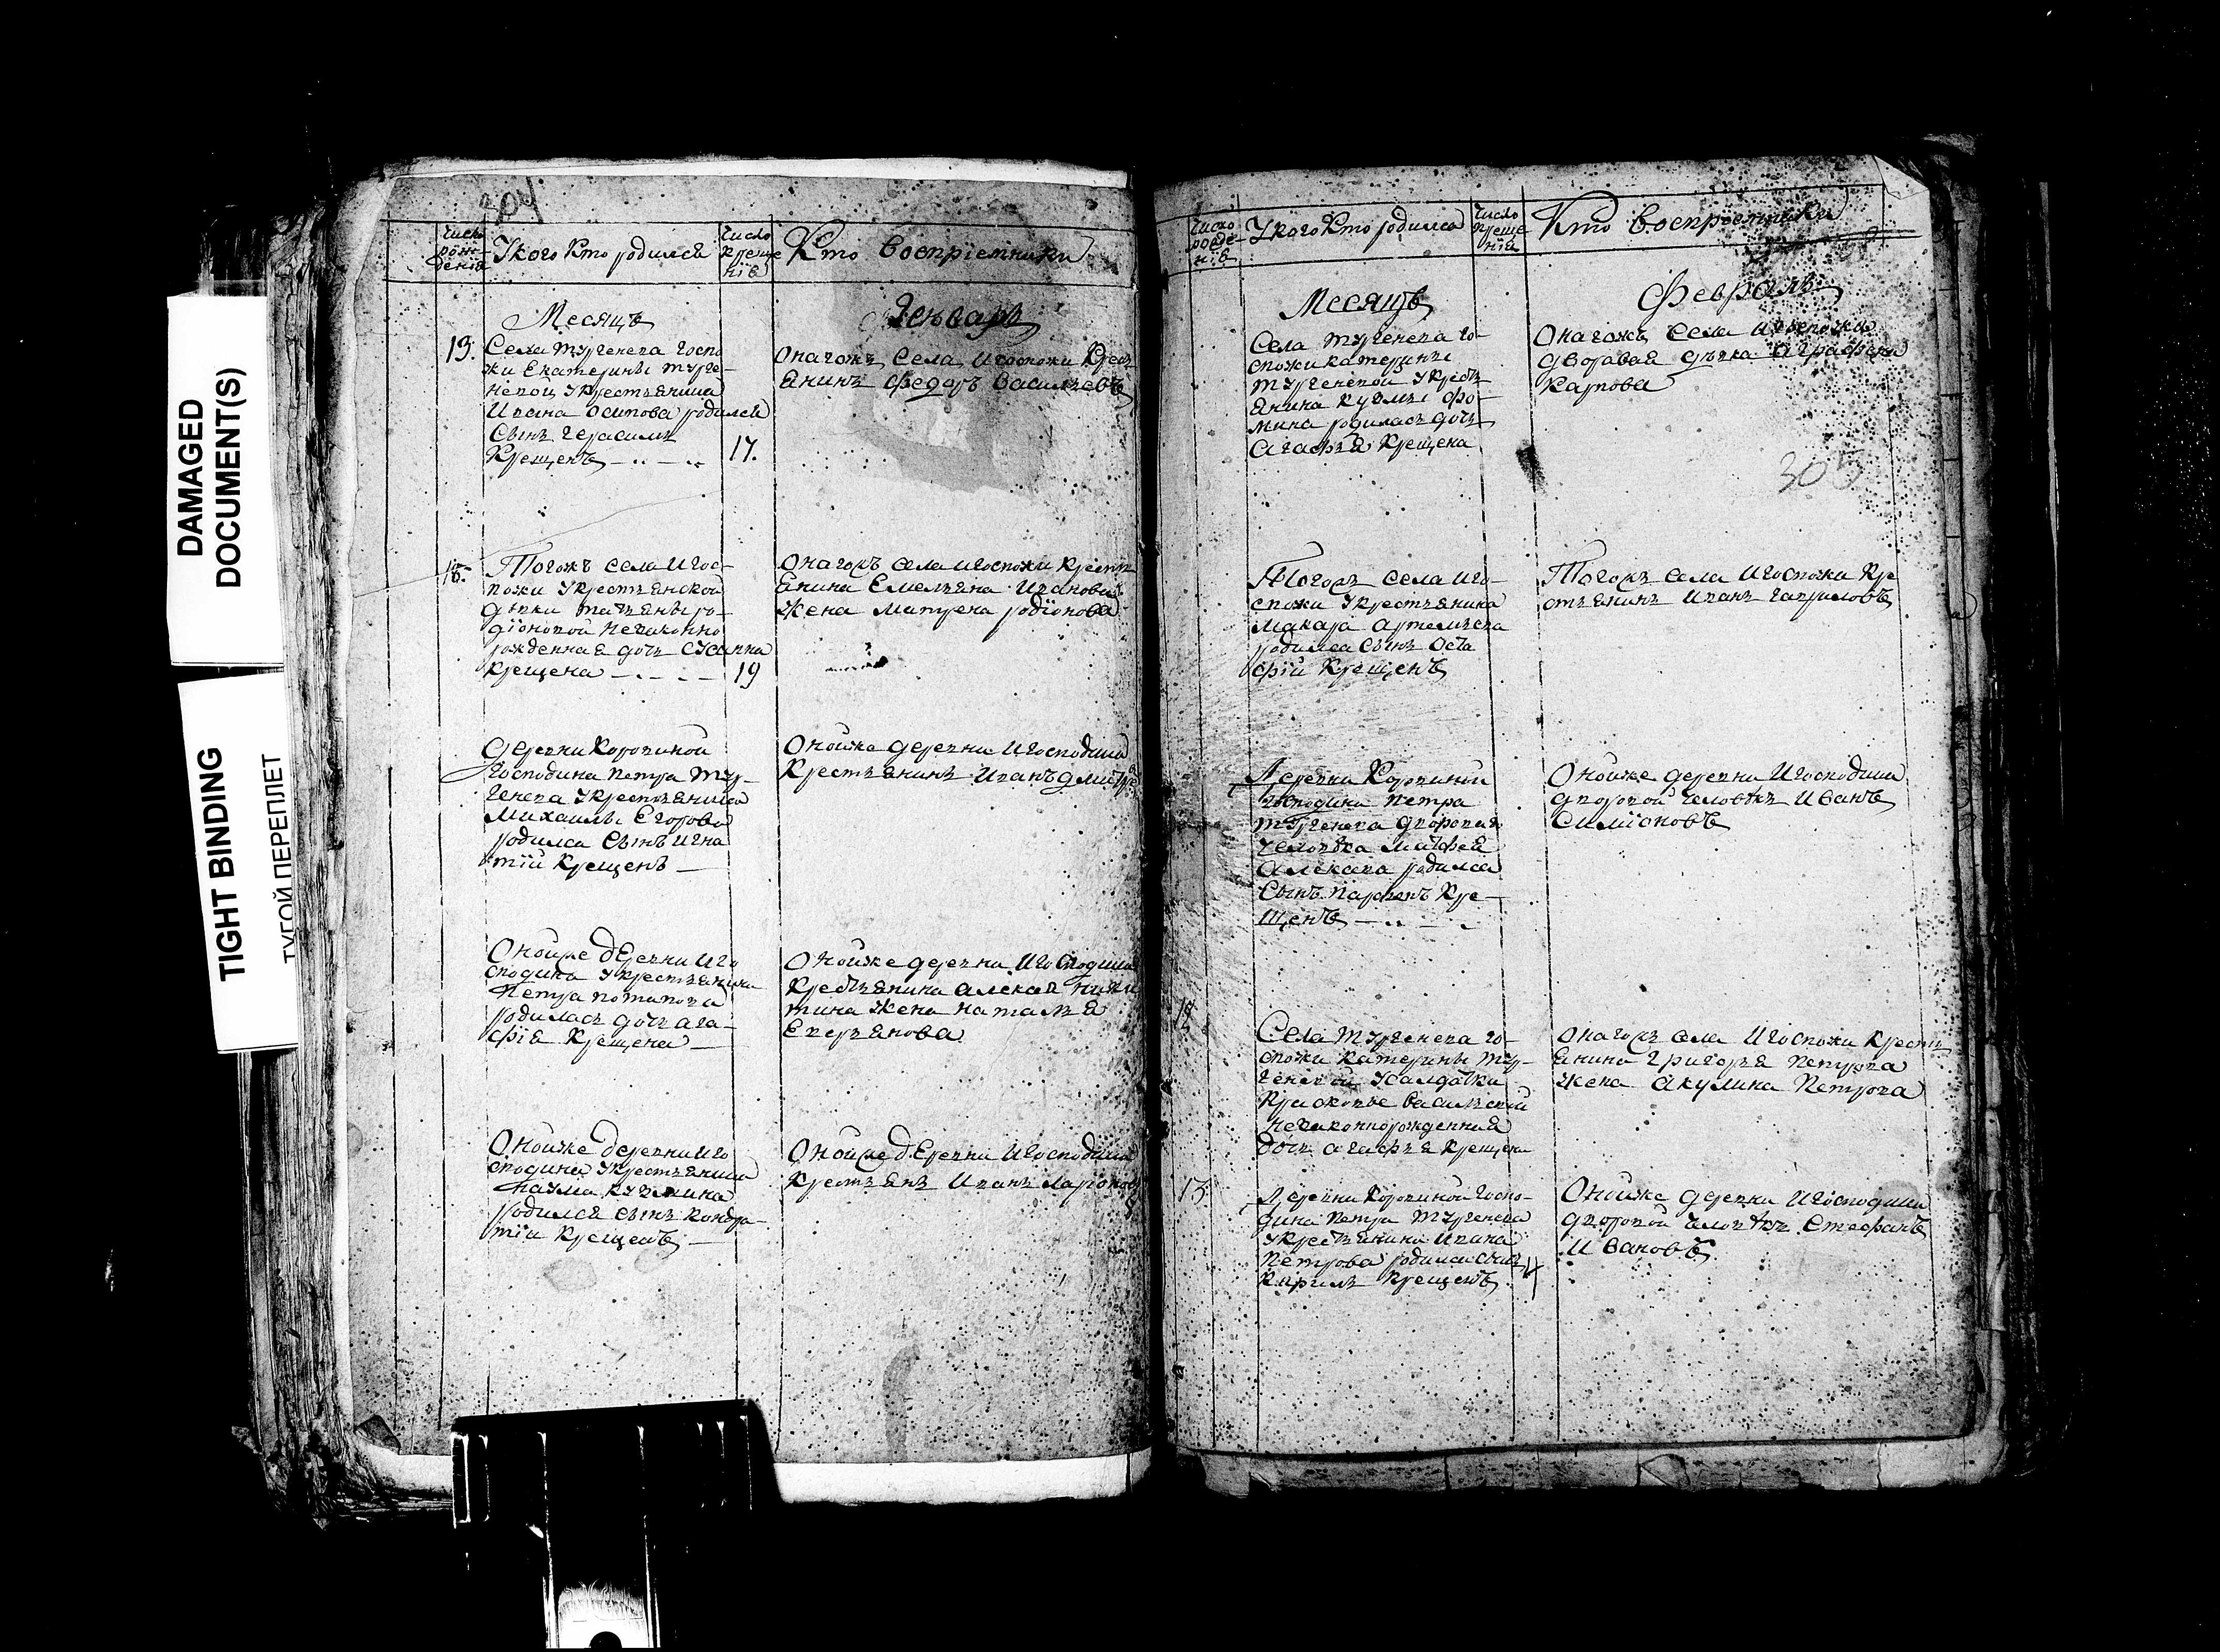 DAMAGED
DOCUMENT(S)
TIGHT BINDING
ТУГОЙ ПЕРЕПЛЕТ
304
Число
рож-
денiя
У кого Кто родился
Число
креще
нiя
Кто воспрiемники
Месяцъ
Генварь
13.
Села Тургенева госпо
жи Екатерины Турге-
невой у крестьянина
Ивана Осипова родился
Сынъ Герасимъ
Крещенъ
17.
Онагожъ Села и госпожи крест
янинъ Федоръ Васильевъ
Тогожъ села и гос-
пожи у крестьянской
девки Татьяны ро-
дiоновой незаконно
рожденная дочь Сусанна
крещена
19
Онагожъ села и госпожи крестъ
янина Емельяна Иванова
жена Матрена родiонова
деревни Коровиной
господина Петра Тур-
генева у крестьянина
Михаилы Егорова
родился Сынъ Игна
тiй Крещенъ
Онойже деревни и господина
Крестьянинъ Иванъ
Онойже деревни и го
сподина у крестьянина
Петра потапова
родилась дочь ага-
фiя Крещена
Онойже деревни и господина
крестьянина алекея
жена Наталья
Онойже деревни и го
сподина у крестьянина
Наума кузмина
родился сынъ кондра-
тiй Крещенъ
Онойже деревни и господина
крестьянъ Иванъ
Число
рожде-
нiя
У кого Кто родился
Число
креще
нiя
Кто воспрiемники
Месяцъ
Февраль
Села Тургенева го-
спожи катерины
Тургеневой у крестъ
янина кузмы фо-
мина родилась дочь
Агафья Крещена
Онагожъ Села и госпожи
дворавая девка аграфена
Карпова
305
Тогожъ села и го-
спожи у крестьянина
Макара артемьева
родился Сынъ Оста
фiй Крещенъ
Тогожъ села и госпожи кре
стьянинъ Иванъ гавриловъ
Деревни Коровиной
господина Петра
Тургенева
человека Матфея
родился
Сынъ Парфенъ Кре-
щенъ
Онойже деревни и господина
дворовой человекъ Иванъ
Симiоновъ
Села Тургенева го-
спожи катерины Тур-
геневой у салдатки
Васильевой
незаконнорожденная
дочь агафья крещена
Онагожъ села и госпожи крестъ
янина григорья петрова
жена акулина Петрова
13.
Деревни Коровиной госпо-
дина Петра Тургенева
у крестьянина Ивана
Петрова родился сынъ
Кирилъ крещенъ
Онойже деревни и господина
дворовой человекъ Стефанъ
Ивановъ